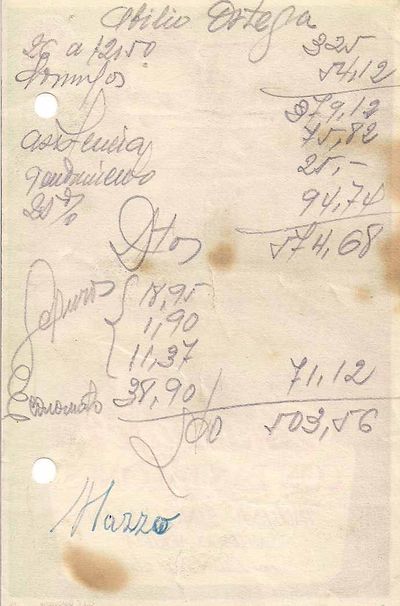 Otilio Ortega
26 a 12,50 325
Domingos 54,12
379,12
asistencia 75,82
rendimiento 25,-
25% 94,74
Dtos 574,68
Seguros 18,95
1,90
11,37
Economato 38,90 71,12
Lto 503,56
Marzo